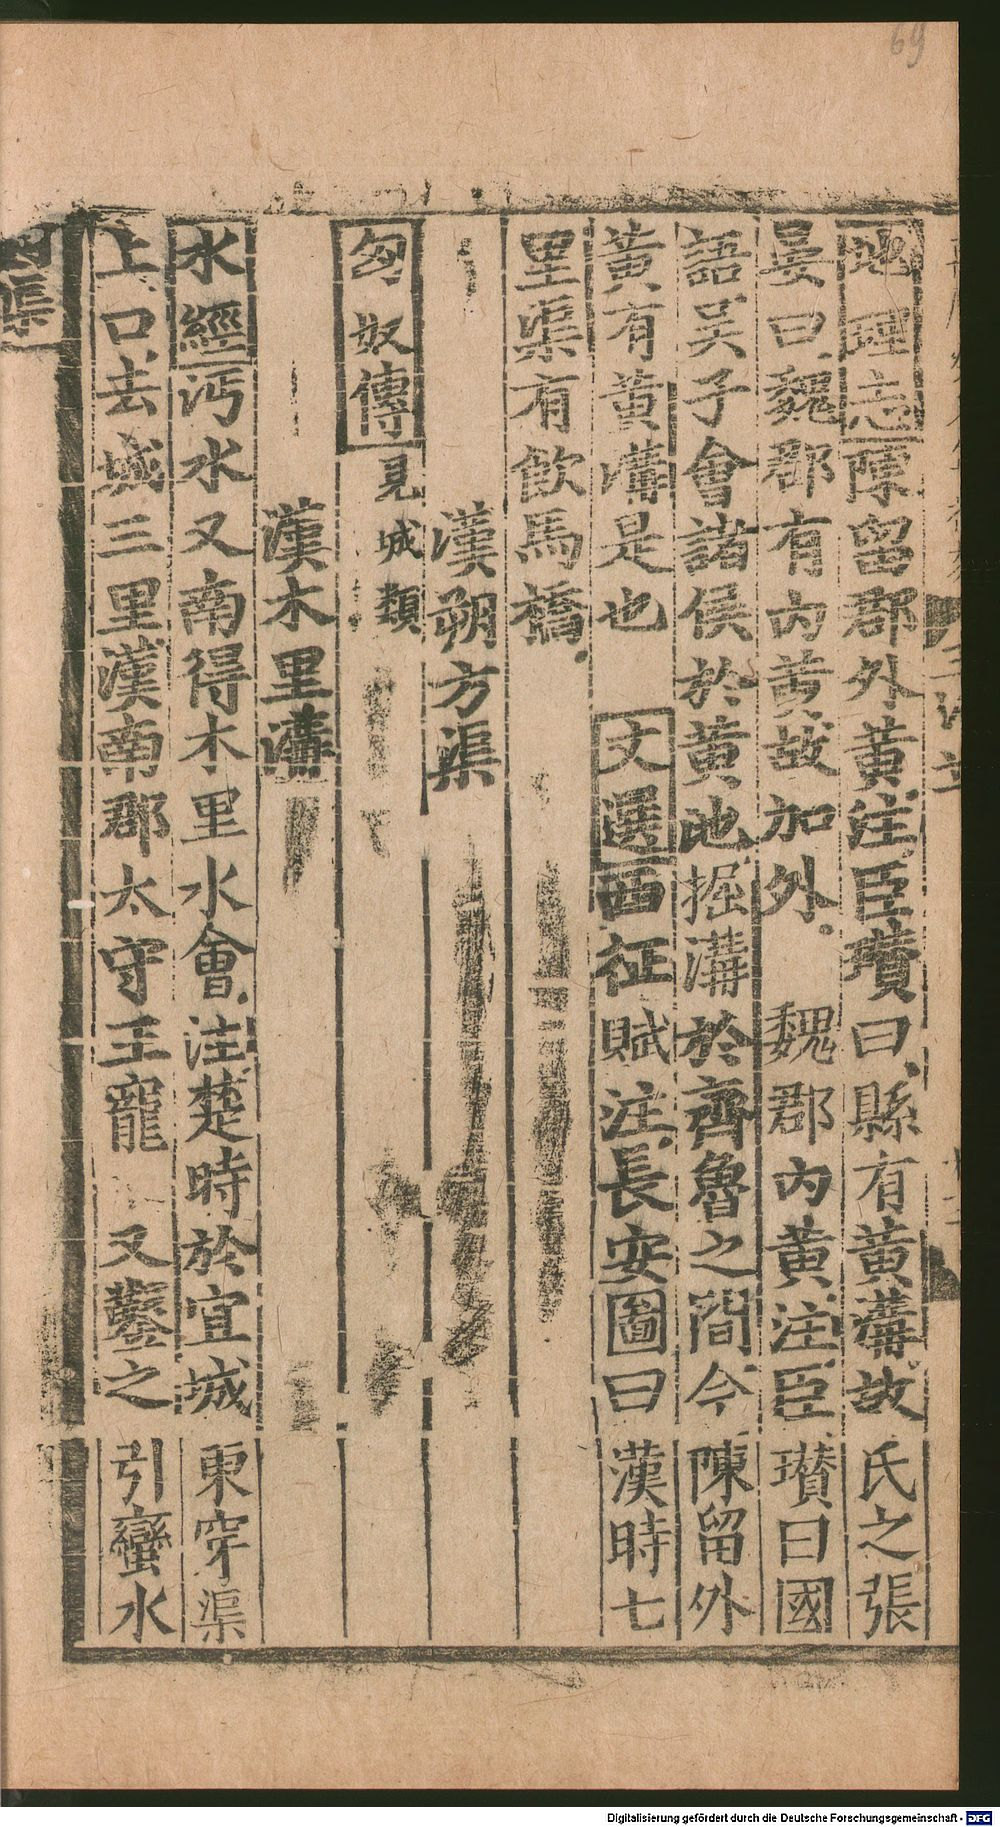 69
地理志陳留郡外黃注臣瓚曰縣有黃溝故氏之張
晏曰魏郡有內黃故加外 魏郡內黃注臣瓚曰國
語吳子會諸侯於黃池掘溝於齊魯之間今陳留外
黃有黃溝是也 文選西征賦注長安圖曰漢時七
里渠有飲馬橋
漢朔方渠
匈奴傳見城類
漢木里溝
水經沔水又南得木里水會注楚時於宜城東穿渠
上口去城三里漢南郡太守王寵 又鑿之引蠻水
渠
Digitalisierung gefördert durch die Deutsche Forschungsgemeinschaft - DFG